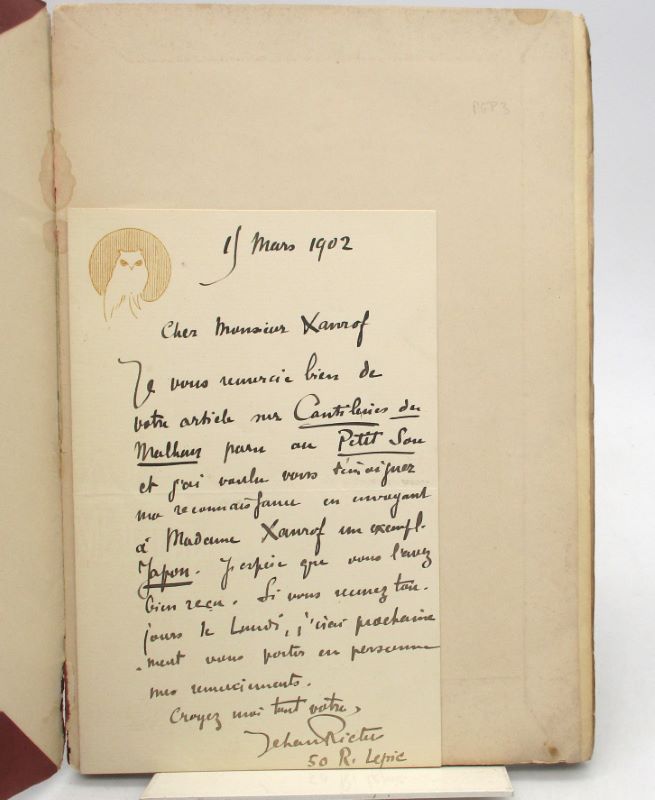 PGP3
15 Mars 1902
Cher Monsieur Xanrof
Je vous remercie bien de
votre article sur Cantilènes du
Malheur paru au Petit Sou
et j'ai voulu vous témoigner
ma reconnaissance en envoyant
à Madame Xanrof un exempl.
Japon. J'espère que vous l'avez
bien reçu. Si vous recevez tou-
jours le Lundi, j'irai prochaine
-ment vous porter en personne
mes remerciements.
Croyez moi tout votre,
Jehan Rictus
50 R. Lepic